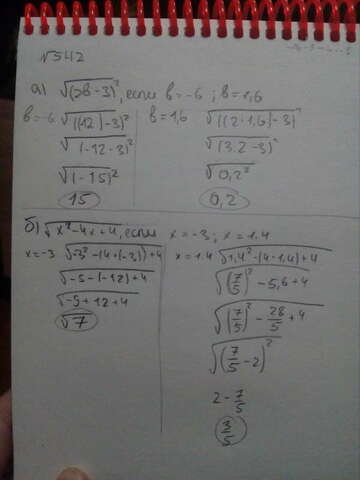 N542
а) √(2в-3)², если в=-6; в=1,6
в=-6 √((-12)-3)²
√(-12-3)²
√(-15)²
15
в=1,6 √((2·1,6)-3)²
√(3,2-3)²
√0,2²
0,2
б) √x²-4x+4, если x=-3; x=1,4
x=-3 √-3²-(4·(-3))+4
√-5-(-12)+4
√-9+12+4
√7
x=1,4 √1,4²-(4·1,4)+4
√(7/5)²-5,6+4
√(7/5)²-28/5+4
√(7/5-2)²
2-7/5
3/5